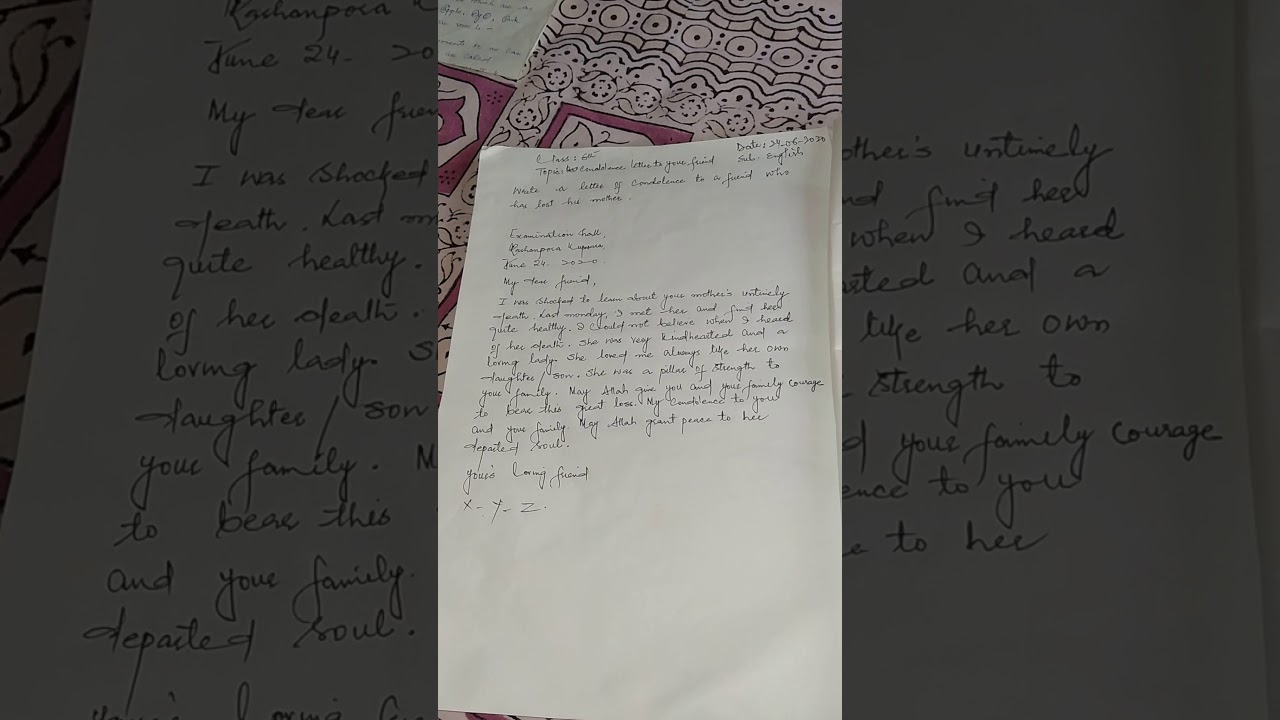 Class: 6th
Date: 24-06-2020
Topic: Condolence letter to your friend
Sub: English
Write a letter of Condolence to a friend who
has lost his mother.
Examination hall,
Rashanpora Kupwara,
June 24. 2020.
My dear friend,
I was shocked to learn about your mother's untimely
death. Last monday, I met her and find her
quite healthy. I could not believe when I heard
of her death. She was very kindhearted and a
loving lady. She loved me always like her own
daughter/son. She was a pillar of strength to
your family. May Allah give you and your family courage
to bear this great loss. My Condolence to you
and your family. May Allah grant peace to her
departed soul.
your's loving friend
X-Y-Z.